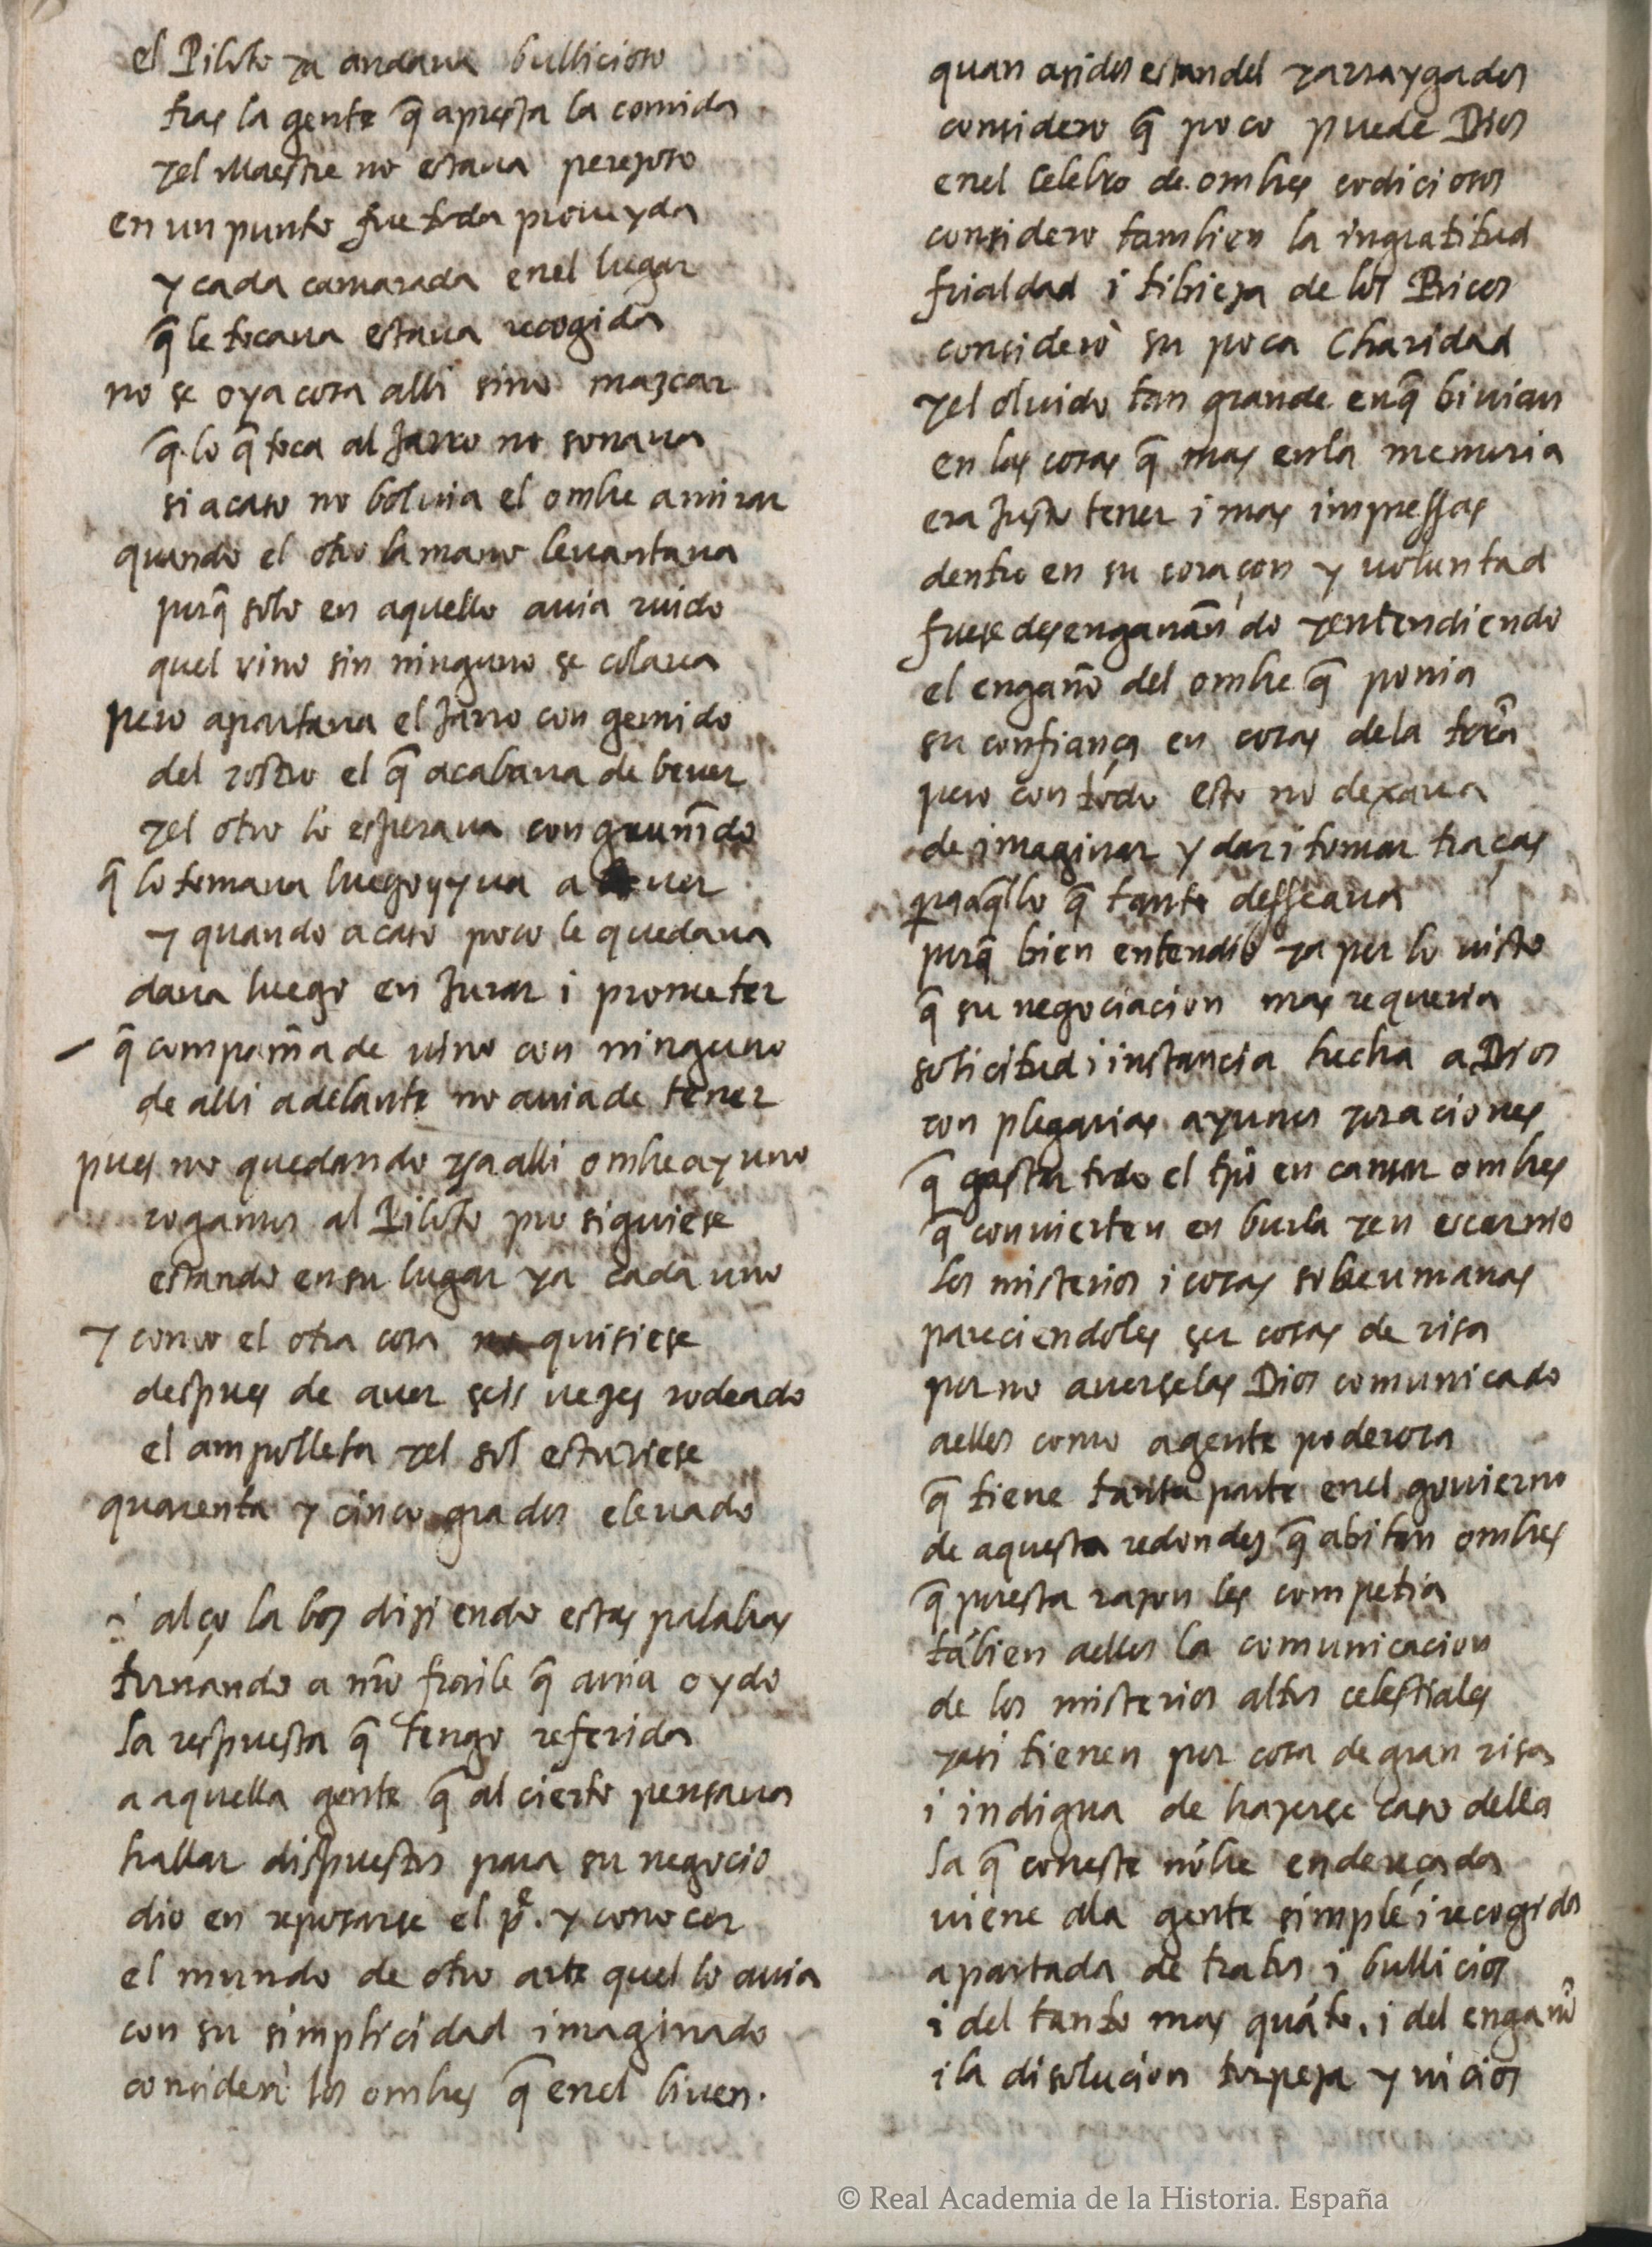 el Piloto ya andaua bullicioso
tras la gente q̃ apresta la comida
yel Maestre no estaua perezoso
en un punto fue toda proueyda
y cada camarada enel lugar
q̃ le tocaua estaua recogida
no se oya cosa alli sino mazcar
q̃ lo q̃ toca al Jarro no sonaua
si acaso no boluia el ombre a mirar
quando el otro la mano leuantaua
porq̃ solo en aquello auia ruido
quel vino sin ninguno se colaua
pero apartaua el Jarro con gemido
del rostro el q̃ acabaua de beuer
yel otro lo esperaua con grunn̄ido
q̃ lo tomaua luego y yua a uer
y quando acaso poco le quedaua
daua luego en Jurar i prometer
q̃ compan̄ia de uino con ninguno
de alli adelante no auia de tener
pues no quedando ya alli ombre ayuno
rogamos al Piloto prosiguiese
estando en su lugar ya cada uno
y como el otra cosa no quisiese
despues de auer seis uezes rodeado
el ampolleta yel sol estuviese
quarenta y cinco grados eleuado
i alço la boz diziendo estas palabras
tornando a nr̄o fraile q̃ auia oydo
la respuesta q̃ tengo referida
a aquella gente q̃ al cierto pensaua
hallar dispuestos para su negocio
dio en reposarse el pe. y conocer
el mundo de otro arte quel lo auia
con su simplicidad imaginado
consideró los ombres q̃ enel biuen.
quan asidos estan del yarraygados
considero q̃ poco puede Dios
enel celebro de ombres codiciosos
considero tambien la ingratitud
frialdad i tibieza de los Ricos
consideró su poca Charidad
yel oluido tan grande enq̃ biuian
en las cosas q̃ mas enla memoria
era Justo tener i mas impressas
dentro en su coraçon y uoluntad
fuese desengañando yentendiendo
el engaño del ombre q̃ ponia
su confiança en cosas dela trr̄a
pero con todo esto no dexaua
de imaginar y dar i tomar traças
paaq̃llo q̃ tanto desseaua
porq̃ bien entendio ya por lo uisto
q̃ su negociacion mas requeria
solicitud i instancia hecha a Dios
con plegarias ayunos yoraciones
q̃ gastar todo el tpō en cansar ombres
q̃ conuierten en burla yen escarnio
los misterios i cosas sobreumanas
pareciendoles ser cosas de risa
por no auerselas Dios comunicado
aellos como agente poderosa
q̃ tiene tanta parte enel gouierno
de aquesta redondez q̃ abitan ombres
q̃ poresta razon les competia
tābien aellos la comunicacion
de los misterios altos celestiales
yasi tienen por cosa de gran risa
i indigna de hazerse caso della
la q̃ coneste nōbre endereçada
uiene ala gente simple i recogida
apartada de tratos i bullicios
i del tanto mas quāto, i del engaño
i la disolucion torpeza y uicios
© Real Academia de la Historia. España